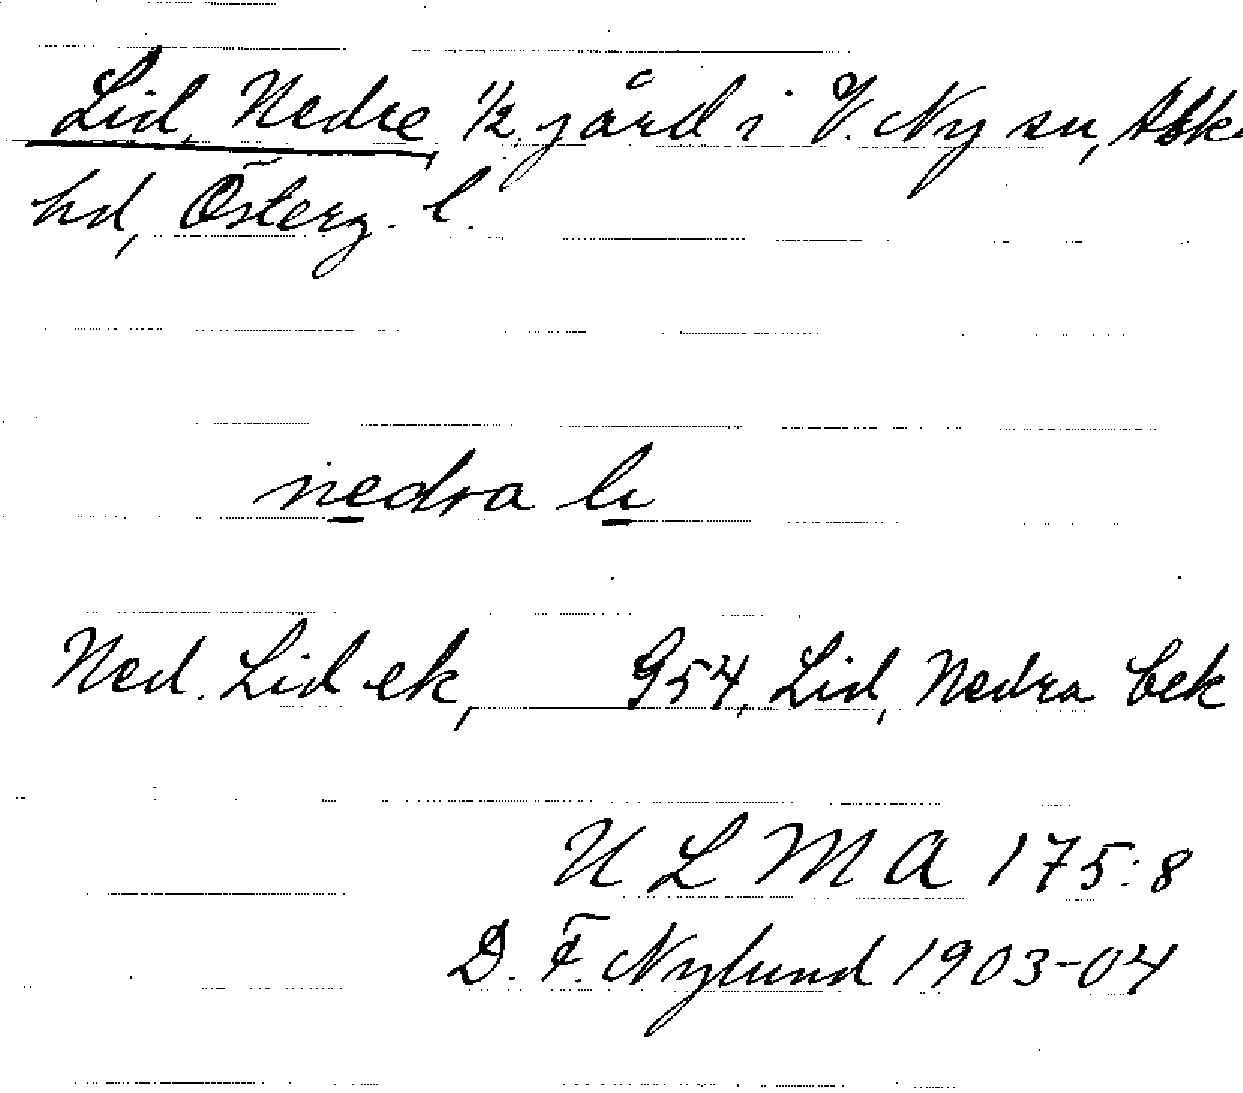 Lid, Nedre, 1/2 gård i V. Ny sn, Aska
hd, Österg. l.
nedra li
Ned. Lid ek, 954, Lid, Nedra bek
ULMA 175:8
D. F. Nylund 1903-04